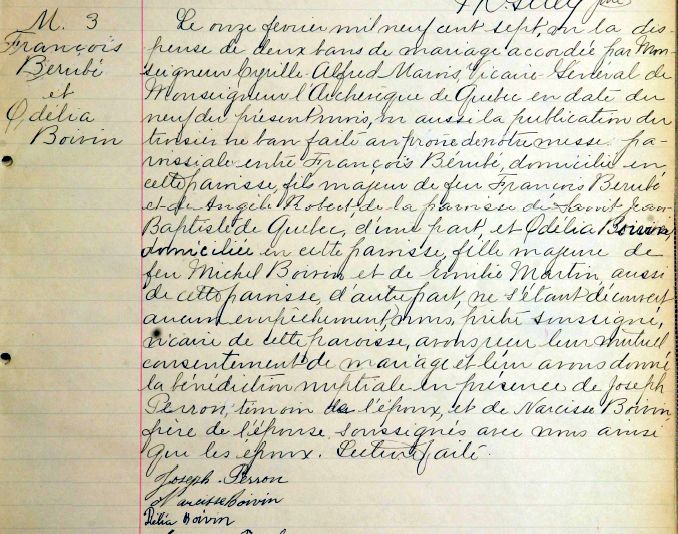 M. 3
François
Bérubé
et
Odélia
Boivin
ptre
Le onze février mil neuf cent sept, vu la dis-
pense de deux bans de mariage accordée par Mon-
seigneur Cyrille Alfred Marois, Vicaire Général de
Monseigneur l'Archevêque de Québec en date du
neuf du présent mois, vu aussi la publication du
troisième ban faite au prône de notre messe pa-
roissiale entre François Bérubé, domicilié en
cette paroisse, fils majeur de feu François Berubé
et de Angèle Robert, de la paroisse de Saint Jean
Baptiste de Québec, d'une part, et Odélia Boivin,
domiciliée en cette paroisse, fille majeure de
feu Michel Boivin et de Emilie Martin, aussi
de cette paroisse, d'autre part, ne s'étant découvert
aucun empêchement, nous, prêtre soussigné,
vicaire de cette paroisse, avons reçu leur mutuel
consentement de mariage et leur avons donné
la bénédiction nuptiale en présence de Joseph
Perron, témoin de l'époux, et de Narcisse Boivin
frère de l'épouse soussignés avec nous ainsi
que les époux. Lecture faite.
Joseph Perron
Narcisse Boivin
Délia Boivin